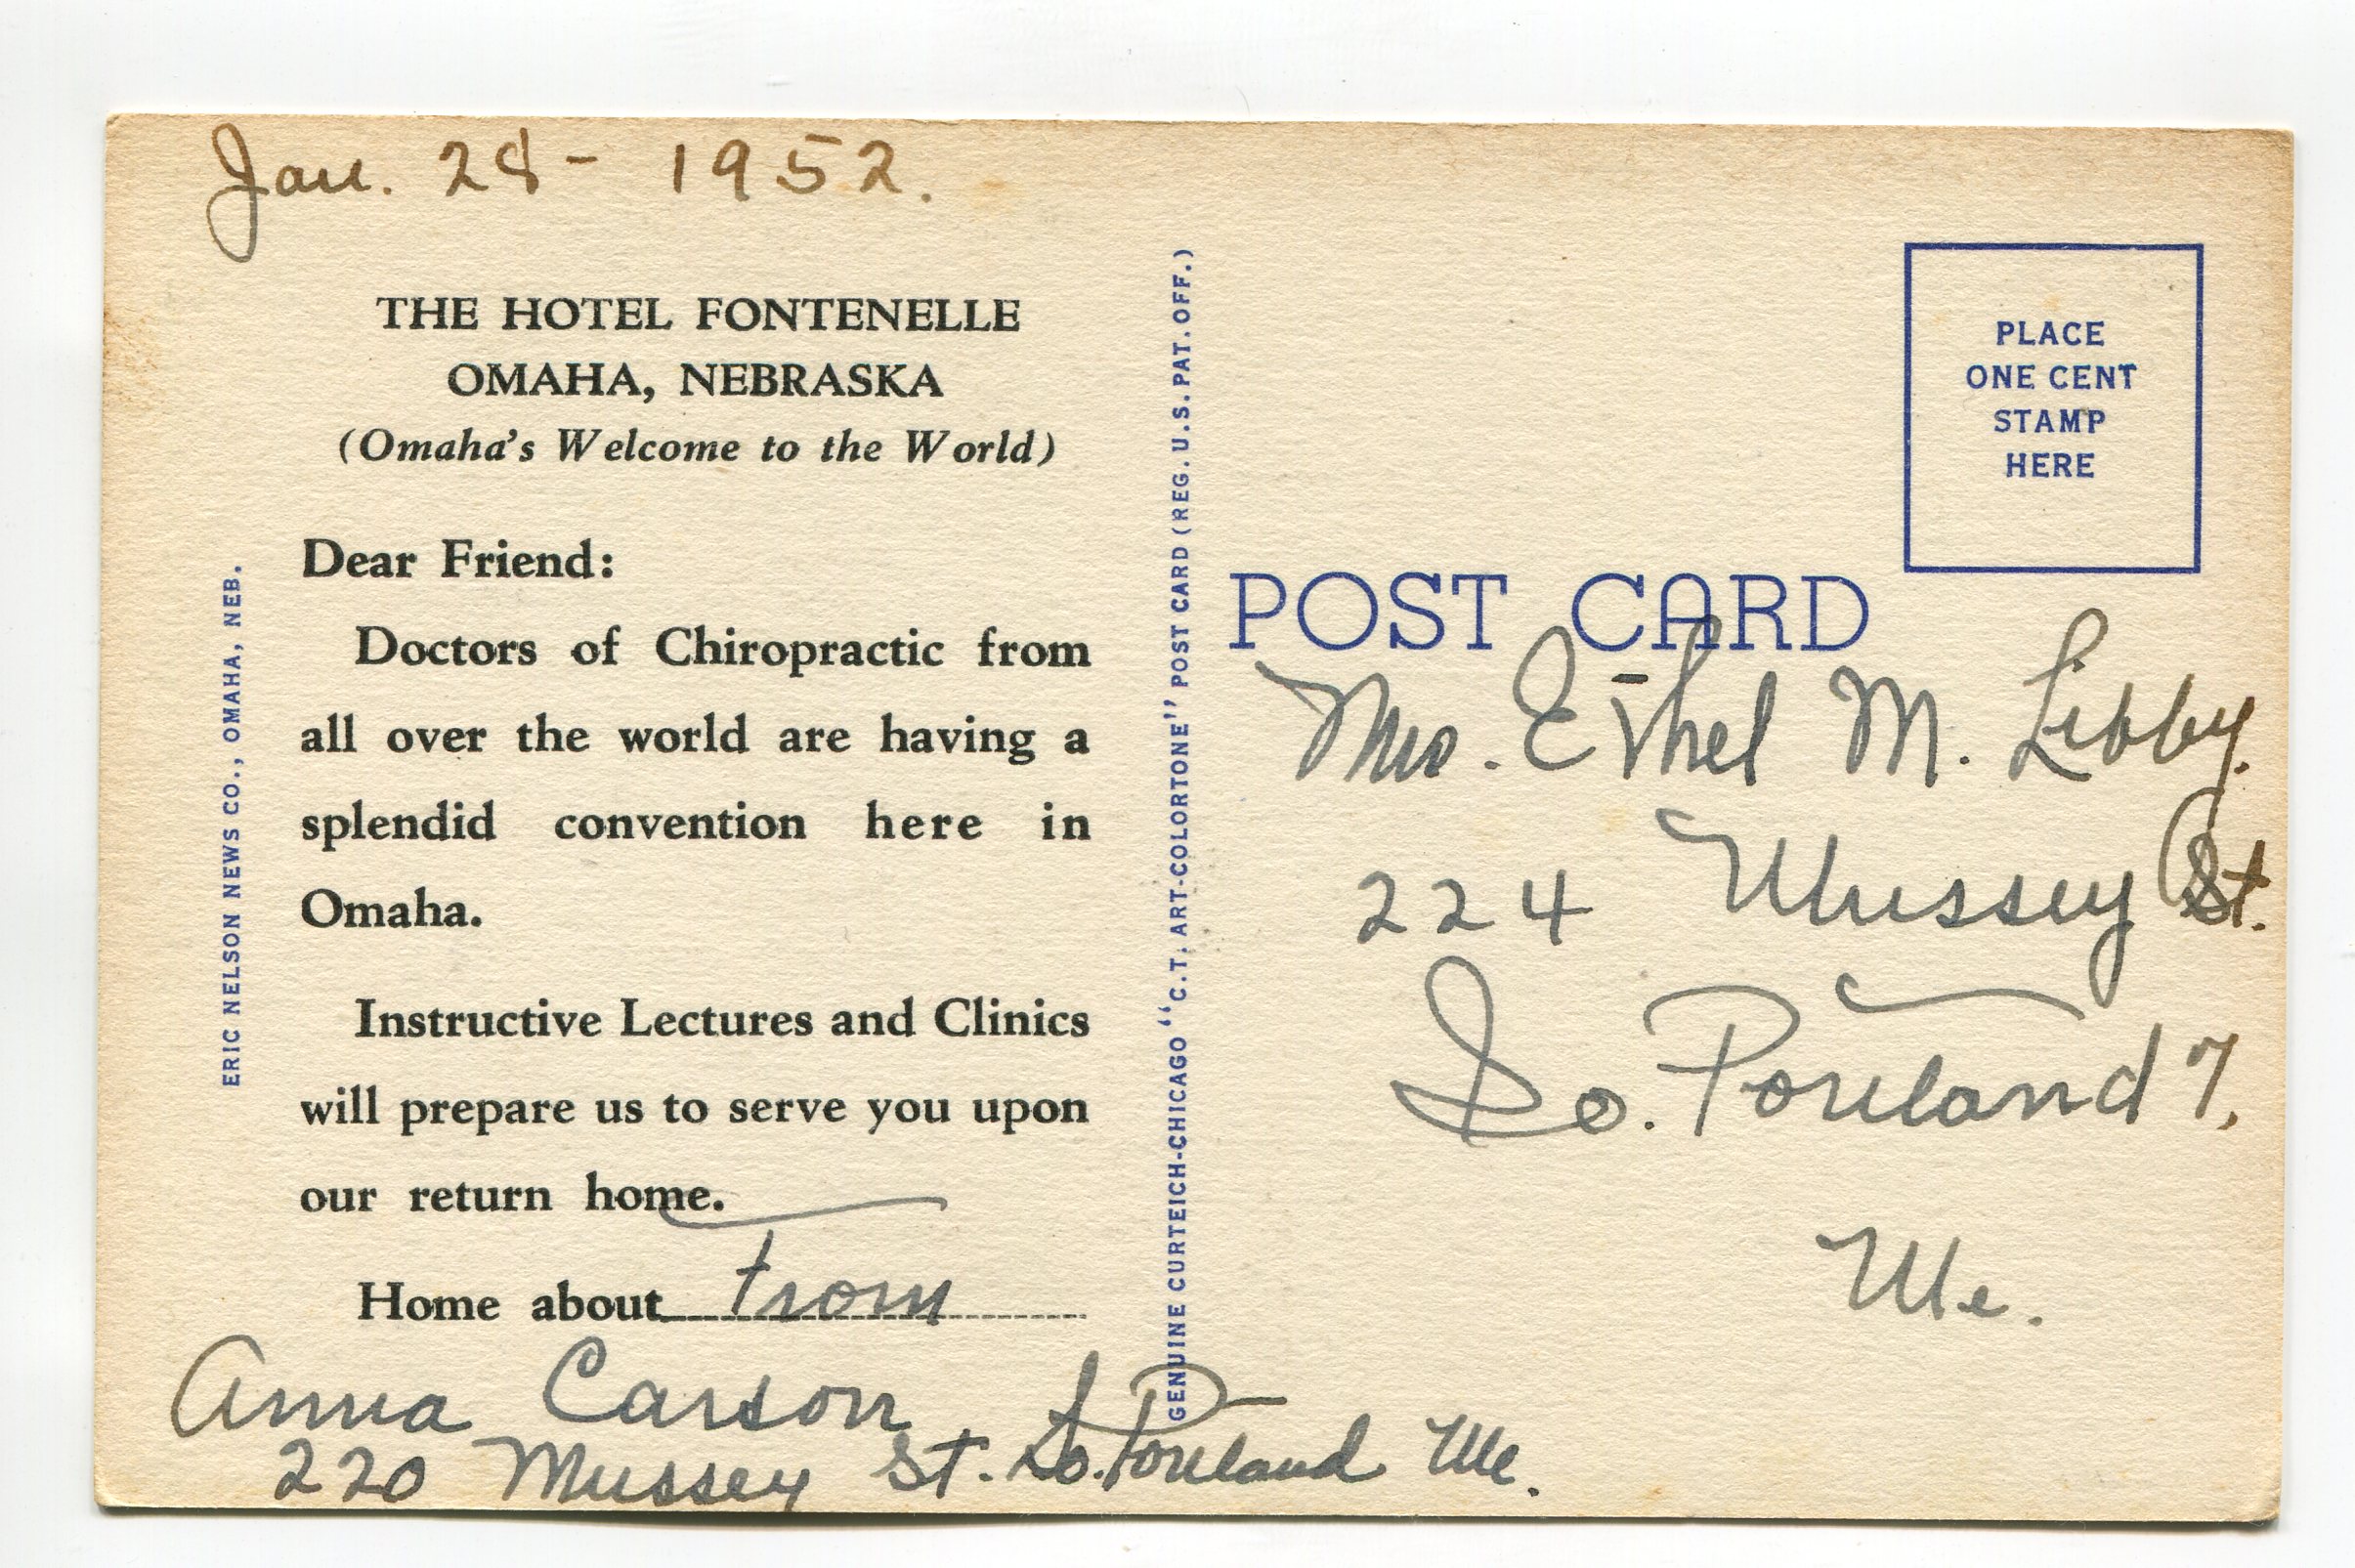 Jan. 28- 1952.
THE HOTEL FONTENELLE
OMAHA, NEBRASKA
(Omaha's Welcome to the World)
Dear Friend:
Doctors of Chiropractic from
all over the world are having a
splendid convention here in
Omaha.
Instructive Lectures and Clinics
will prepare us to serve you upon
our return home.
Home about from
Anna Carson
220 Mussey St. So. Portland Me.
ERIC NELSON NEWS CO., OMAHA, NEB.
GENUINE CURTEICH-CHICAGO "C.T. ART-COLORTONE" POST CARD (REG. U.S. PAT. OFF.)
PLACE
ONE CENT
STAMP
HERE
POST CARD
Mrs. Ethel M. Libby.
224 Mussey St.
So. Portland 7,
Me.